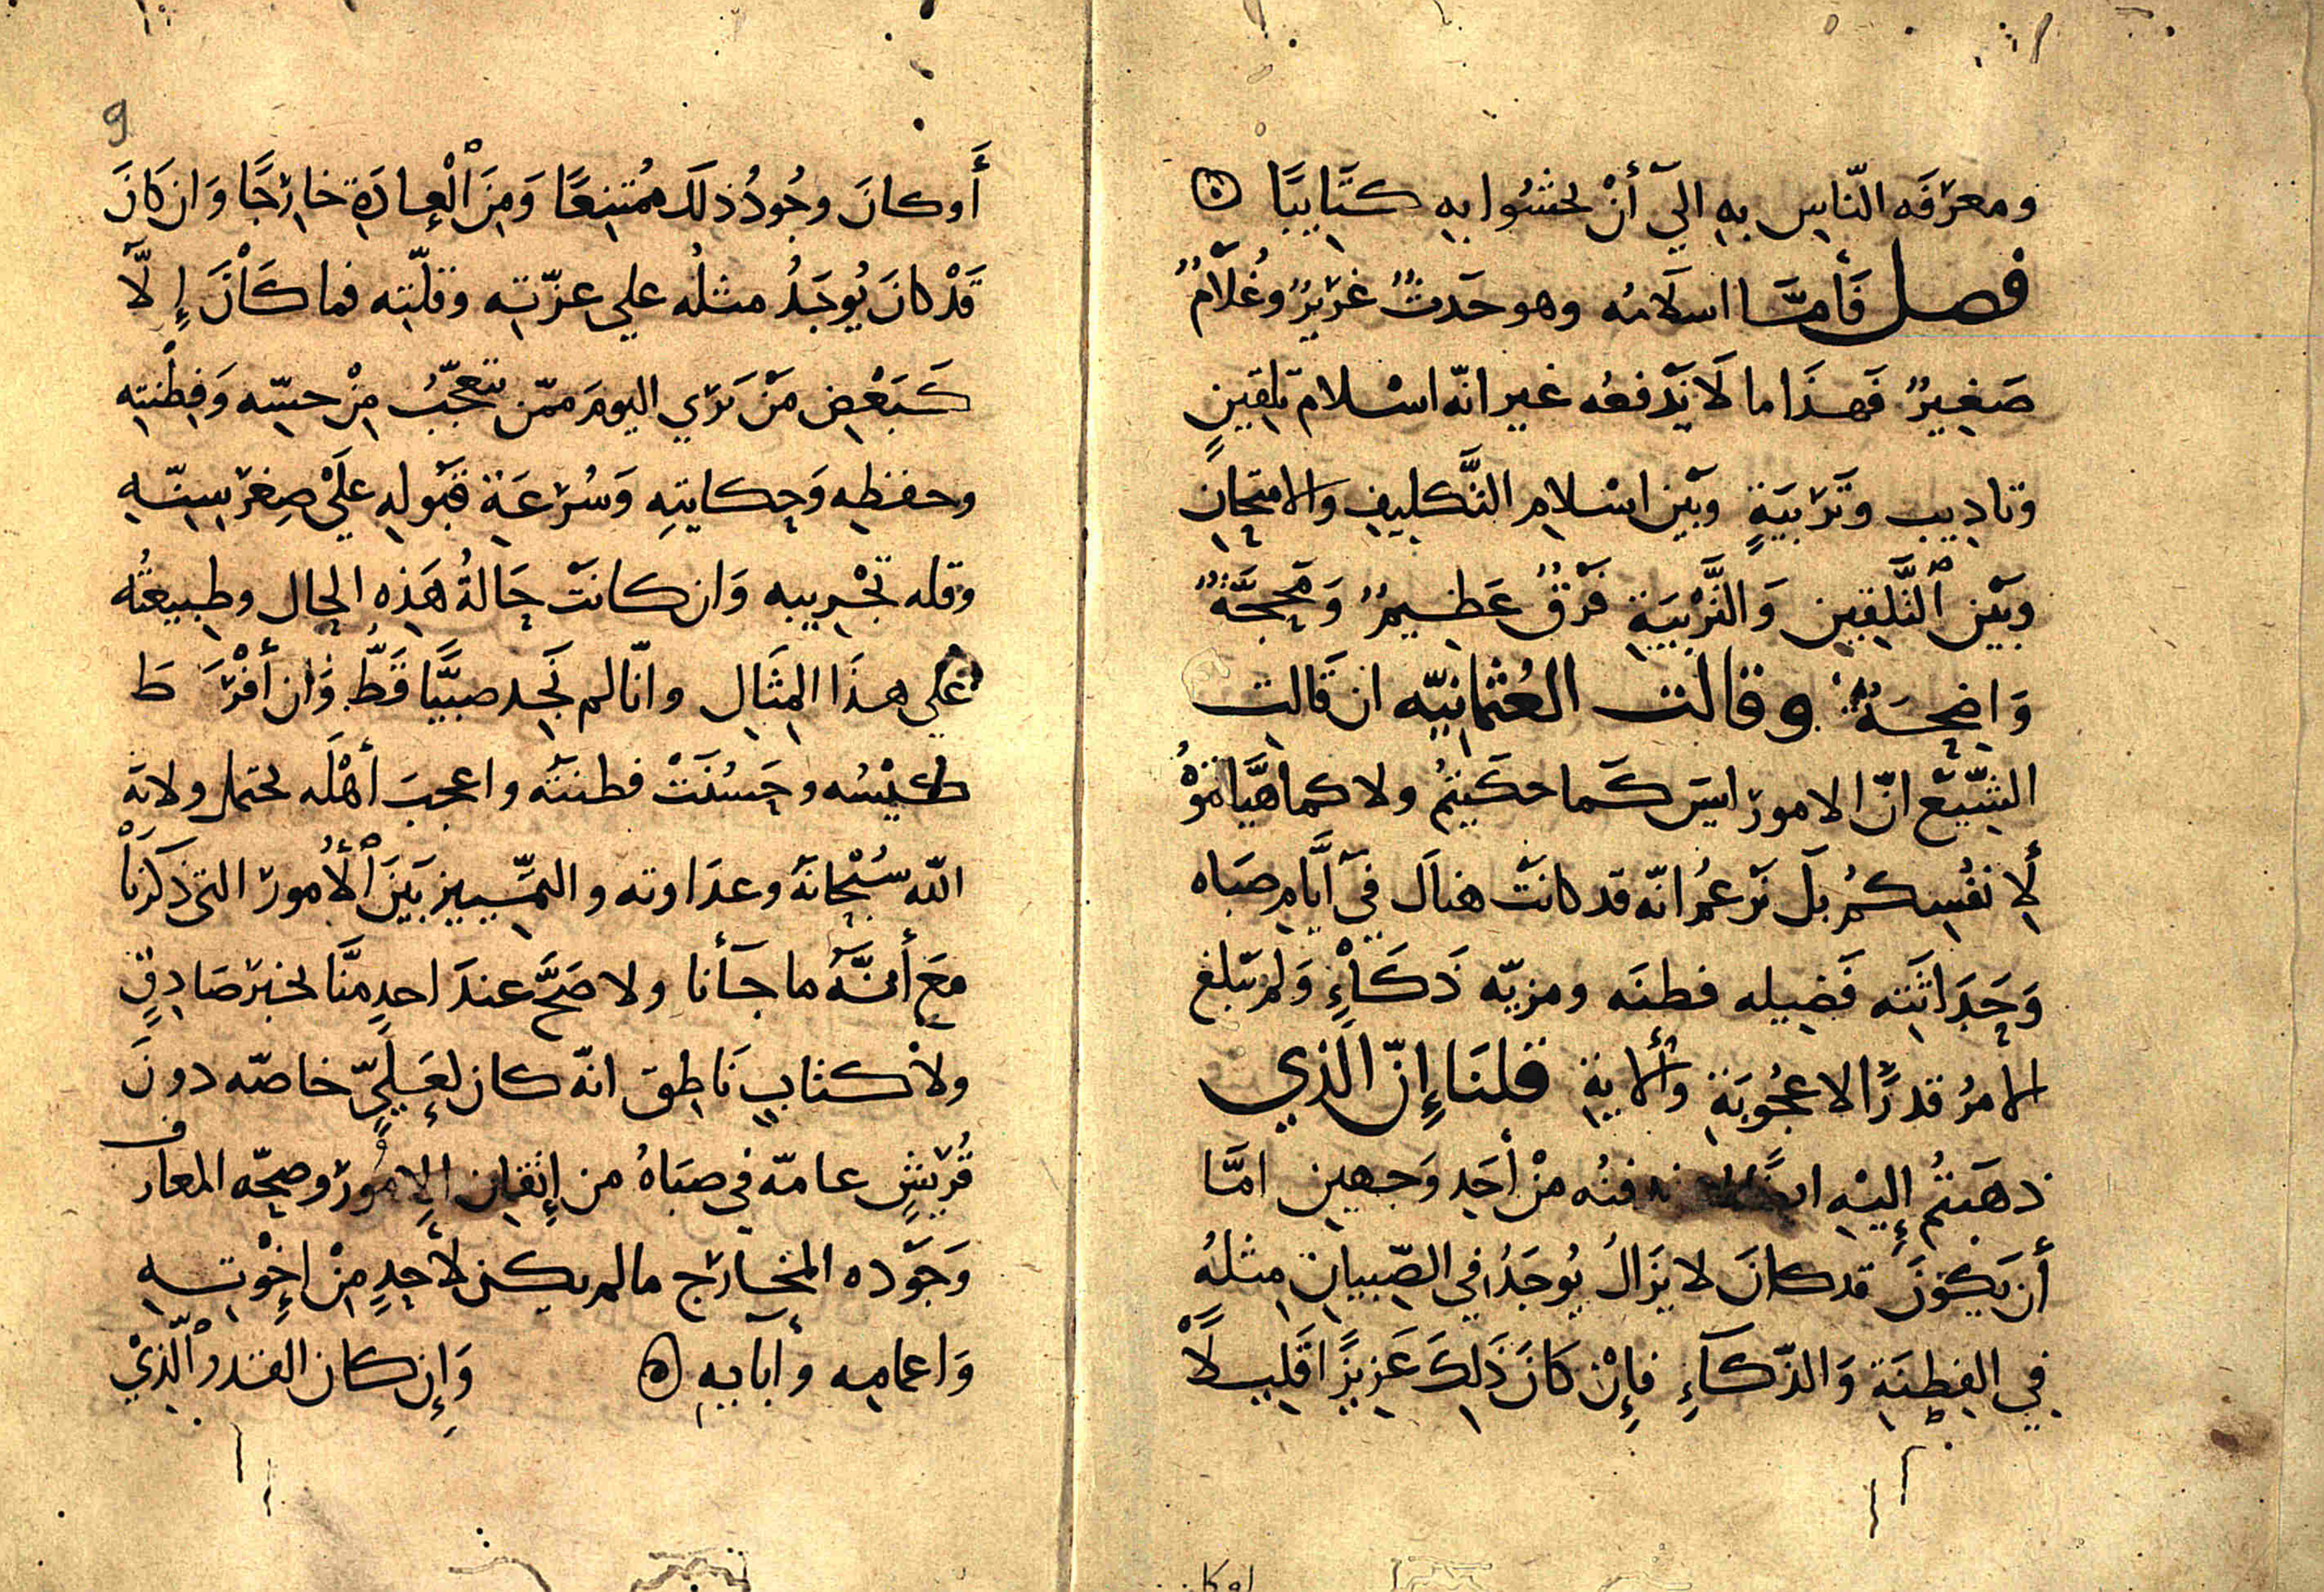 ومعرفَه النّاسِ بهِ اليَ أنْ يحشُوا بهِ كتَابيًا
فصل فَأمَّا اسلَامُه وهو حَدثٌ غرِيرٌ وغُلَامٌ
صَغيرٌ فَهذَا ما لَا نَدْفعُه غير انّه اسْلام تلقينٍ
وتاديب وتَرْبيَةٍ وبَيْن اسْلام التَّكليفِ والامتحان
وبَيْن ٱلتَّلقين وَالتَّرْبيَةِ فَرْقٌ عَظيمٌ وَمَحجَّةٌ
وَاضحَةٌ وقالت العُثمانيّه ان قَالت
الشّيَع انّ الامورَ ليسَ كَما حكَيتمُ ولا كما هيَّاتموُهُ
لِأنفُسكمُ بلَ نَزعمُ انّه قد كانَتْ هناَك في أيَّامِ صبَاه
وَحَدَاثَته فَضيله فطنَه ومزيّه ذَكَاءٍ وَلم تَبلغ
الامرُ قدرَ الاعجُوبَةِ وَالأيةِ قلنَا إِنّ الَّذي
ذهَبتُمُ إليْهِ منْ أحَدِ وَجهينِ امَّا
أن يَكُونَ قد كانَ لا يَزَالُ يُوجَدُ في الصّبيانِ مثلُهُ
في الفِطنَةِ وَالذّكَآءِ فإِنْ كَانَ ذَلِكَ عَزيزًا قَليلًا
أو كا
9
أَوكانَ وجُودُ ذلكَ مُمتَنِعًا وَمِنَ ٱلْعَادَةِ خَارِجًا وَان كَانَ
قَدْ كانَ يُوجَدُ مثلُه علي عزّتِه وقلّتِه فما كَاْنَ إِلَّا
كَبَعْضِ مَنْ نَرَي اليومَ ممّن نتعجّبُ مِنْ حسّه وَفِطْنتِهِ
وحفظِهِ وَحكايتِهِ وَسُرْعَةِ قبُولهِ عَلَي صِغَر سِنّهِ
وقله تجْربِيه وَان كانَتْ حَالةُ هَذِه الحال وطبيعتُه
علي هذَا المثَالِ وانّا لم نَجد صبيًّا قَطُّ وَان أفْرَطَ
كَيْسُه وحَسُنَتْ فطنتُه واعجبَ أهْلَه يحتمل ولايَة
اللّه سُبْحَانَهُ وعدَاوته والتمّييز بَيَنَ ٱلْأُمورَ التي ذكَرْنَا
معَ أنَّهُ ما جَأنا ولا صَحَّ عندَ احدٍ منَّا بخبَرٍ صَادِقٍ
ولا كتابٍ نَاطِق انّه كان لعَلِيٍّ خاصّه دونَ
قُرَيْشٍ عامّه في صِبَاهُ من إِتْقان الأمُور وصحّه المعارف
وَجَوّده المخارج ما لم يكن لأحدٍ مِنْ إِخْوتِهِ
وَاعمامِه وأبَايه وَإِن كان القدر ٱلّذيْ